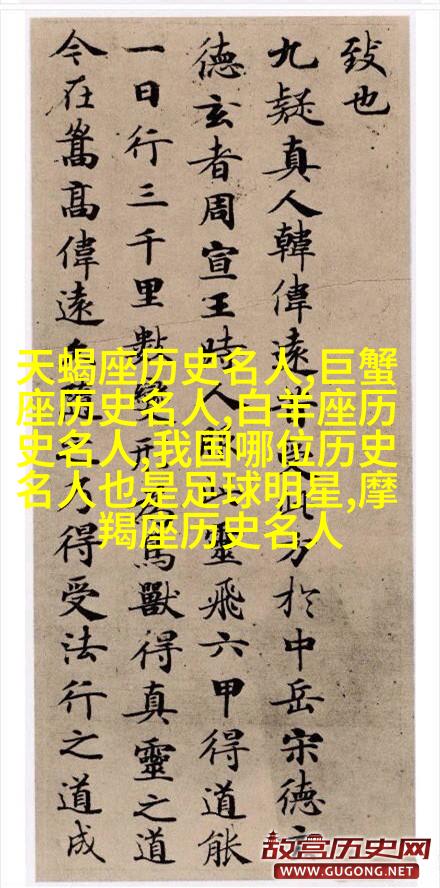 致也
九疑真人韓偉遠昔受此方於中岳宋德玄
德玄者周宣王時人服此靈飛六甲得道能
一日行三千里數變形為鳥獸得真靈之道
今在嵩高偉遠之乃得受法行之道成
天蝎座历史名人,巨蟹
座历史名人,白羊座历
史名人,我国哪位历史
名人也是足球明星,摩
羯座历史名人
故宫历史网
WWW.GUGONG.NET